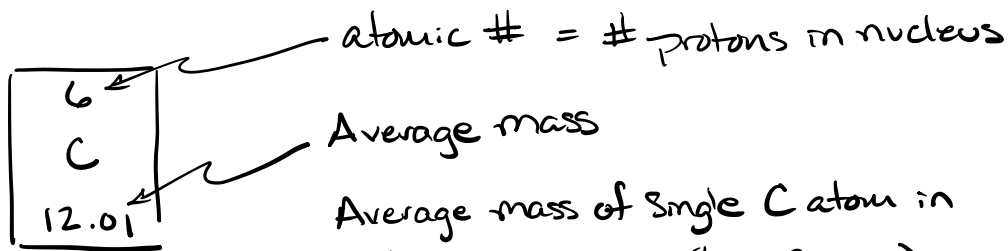 atomic # = # protons in nucleus
6
C
12.01
Average mass
Average mass of single C atom in